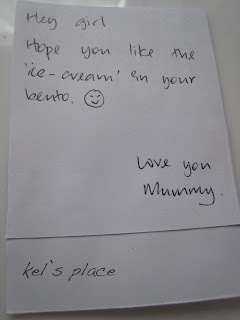 Hey girl
Hope you like the
'ice-cream' in your
bento. ☺
Love you
Mummy.
kel's place